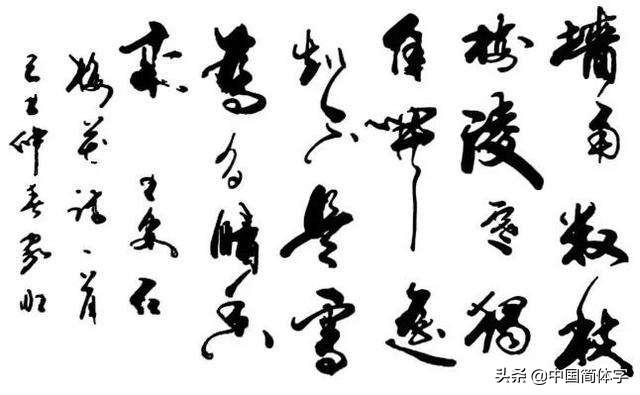 墙角数枝
梅凌寒独
自開遥
知不是雪
為有暗香
来 王安石
梅花诗一首
己丑仲春
头条 @中国简体字